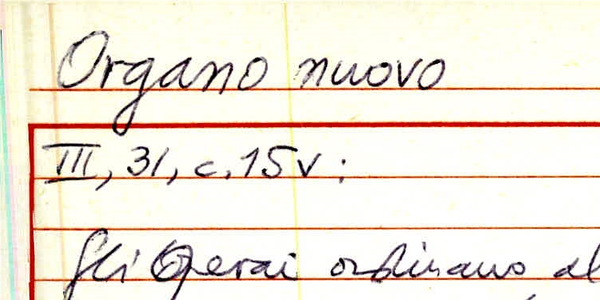 Organo nuovo
III, 31, c. 15v:
gli Operai ordinano al